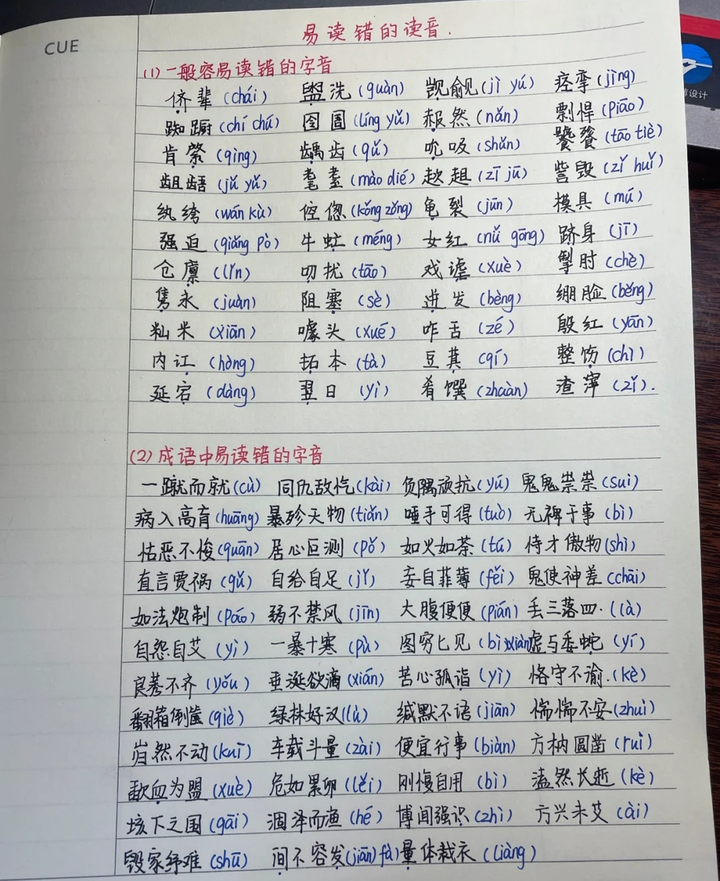 CUE
易读错的读音.
(1)一般容易读错的字音
侪辈(chái) 盥洗(guàn) 觊觎(jì yú) 痉挛(jìng)
踟蹰(chí chú) 囹圄(líng yǔ) 赧然(nǎn) 剽悍(piāo)
肯綮(qìng) 龋齿(qǔ) 吮吸(shǔn) 饕餮(tāo tiè)
龃龉(jǔ yǔ) 耄耋(mào dié) 趑趄(zī jū) 訾毁(zǐ huǐ)
纨绔(wán kù) 倥偬(kǒng zǒng) 龟裂(jūn) 模具(mú)
强迫(qiǎng pò) 牛虻(méng) 女红(nǚ gōng) 跻身(jī)
仓廪(lǐn) 叨扰(tāo) 戏谑(xuè) 掣肘(chè)
隽永(juàn) 阻塞(sè) 迸发(bèng) 绷脸(běng)
籼米(xiān) 噱头(xué) 咋舌(zé) 殷红(yān)
内讧(hòng) 拓本(tà) 豆萁(qí) 整饬(chì)
延宕(dàng) 翌日(yì) 肴馔(zhuàn) 渣滓(zǐ).
(2)成语中易读错的字音
一蹴而就(cù) 同仇敌忾(kài) 负隅顽抗(yú) 鬼鬼祟祟(suì)
病入膏肓(huāng) 暴殄天物(tiǎn) 唾手可得(tuò) 无裨于事(bì)
怙恶不悛(quān) 居心叵测(pǒ) 如火如荼(tú) 恃才傲物(shì)
直言贾祸(gǔ) 自给自足(jǐ) 妄自菲薄(fěi) 鬼使神差(chāi)
如法炮制(páo) 弱不禁风(jīn) 大腹便便(pián) 丢三落四.(là)
自怨自艾(yì) 一暴十寒(pù) 图穷匕见(bǐ xiàn)虚与委蛇(yí)
良莠不齐(yǒu) 垂涎欲滴(xián) 苦心孤诣(yì) 恪守不渝.(kè)
翻箱倒箧(qiè) 绿林好汉(lù) 缄默不语(jiān) 惴惴不安(zhuì)
岿然不动(kuī) 车载斗量(zài) 便宜行事(biàn) 方枘圆凿(ruì)
歃血为盟(xuè) 危如累卵(lěi) 刚愎自用(bì) 溘然长逝(kè)
垓下之围(gāi) 涸泽而渔(hé) 博闻强识(zhì) 方兴未艾(ài)
毁家纾难(shū) 间不容发(jiān)fà)量体裁衣(liàng)